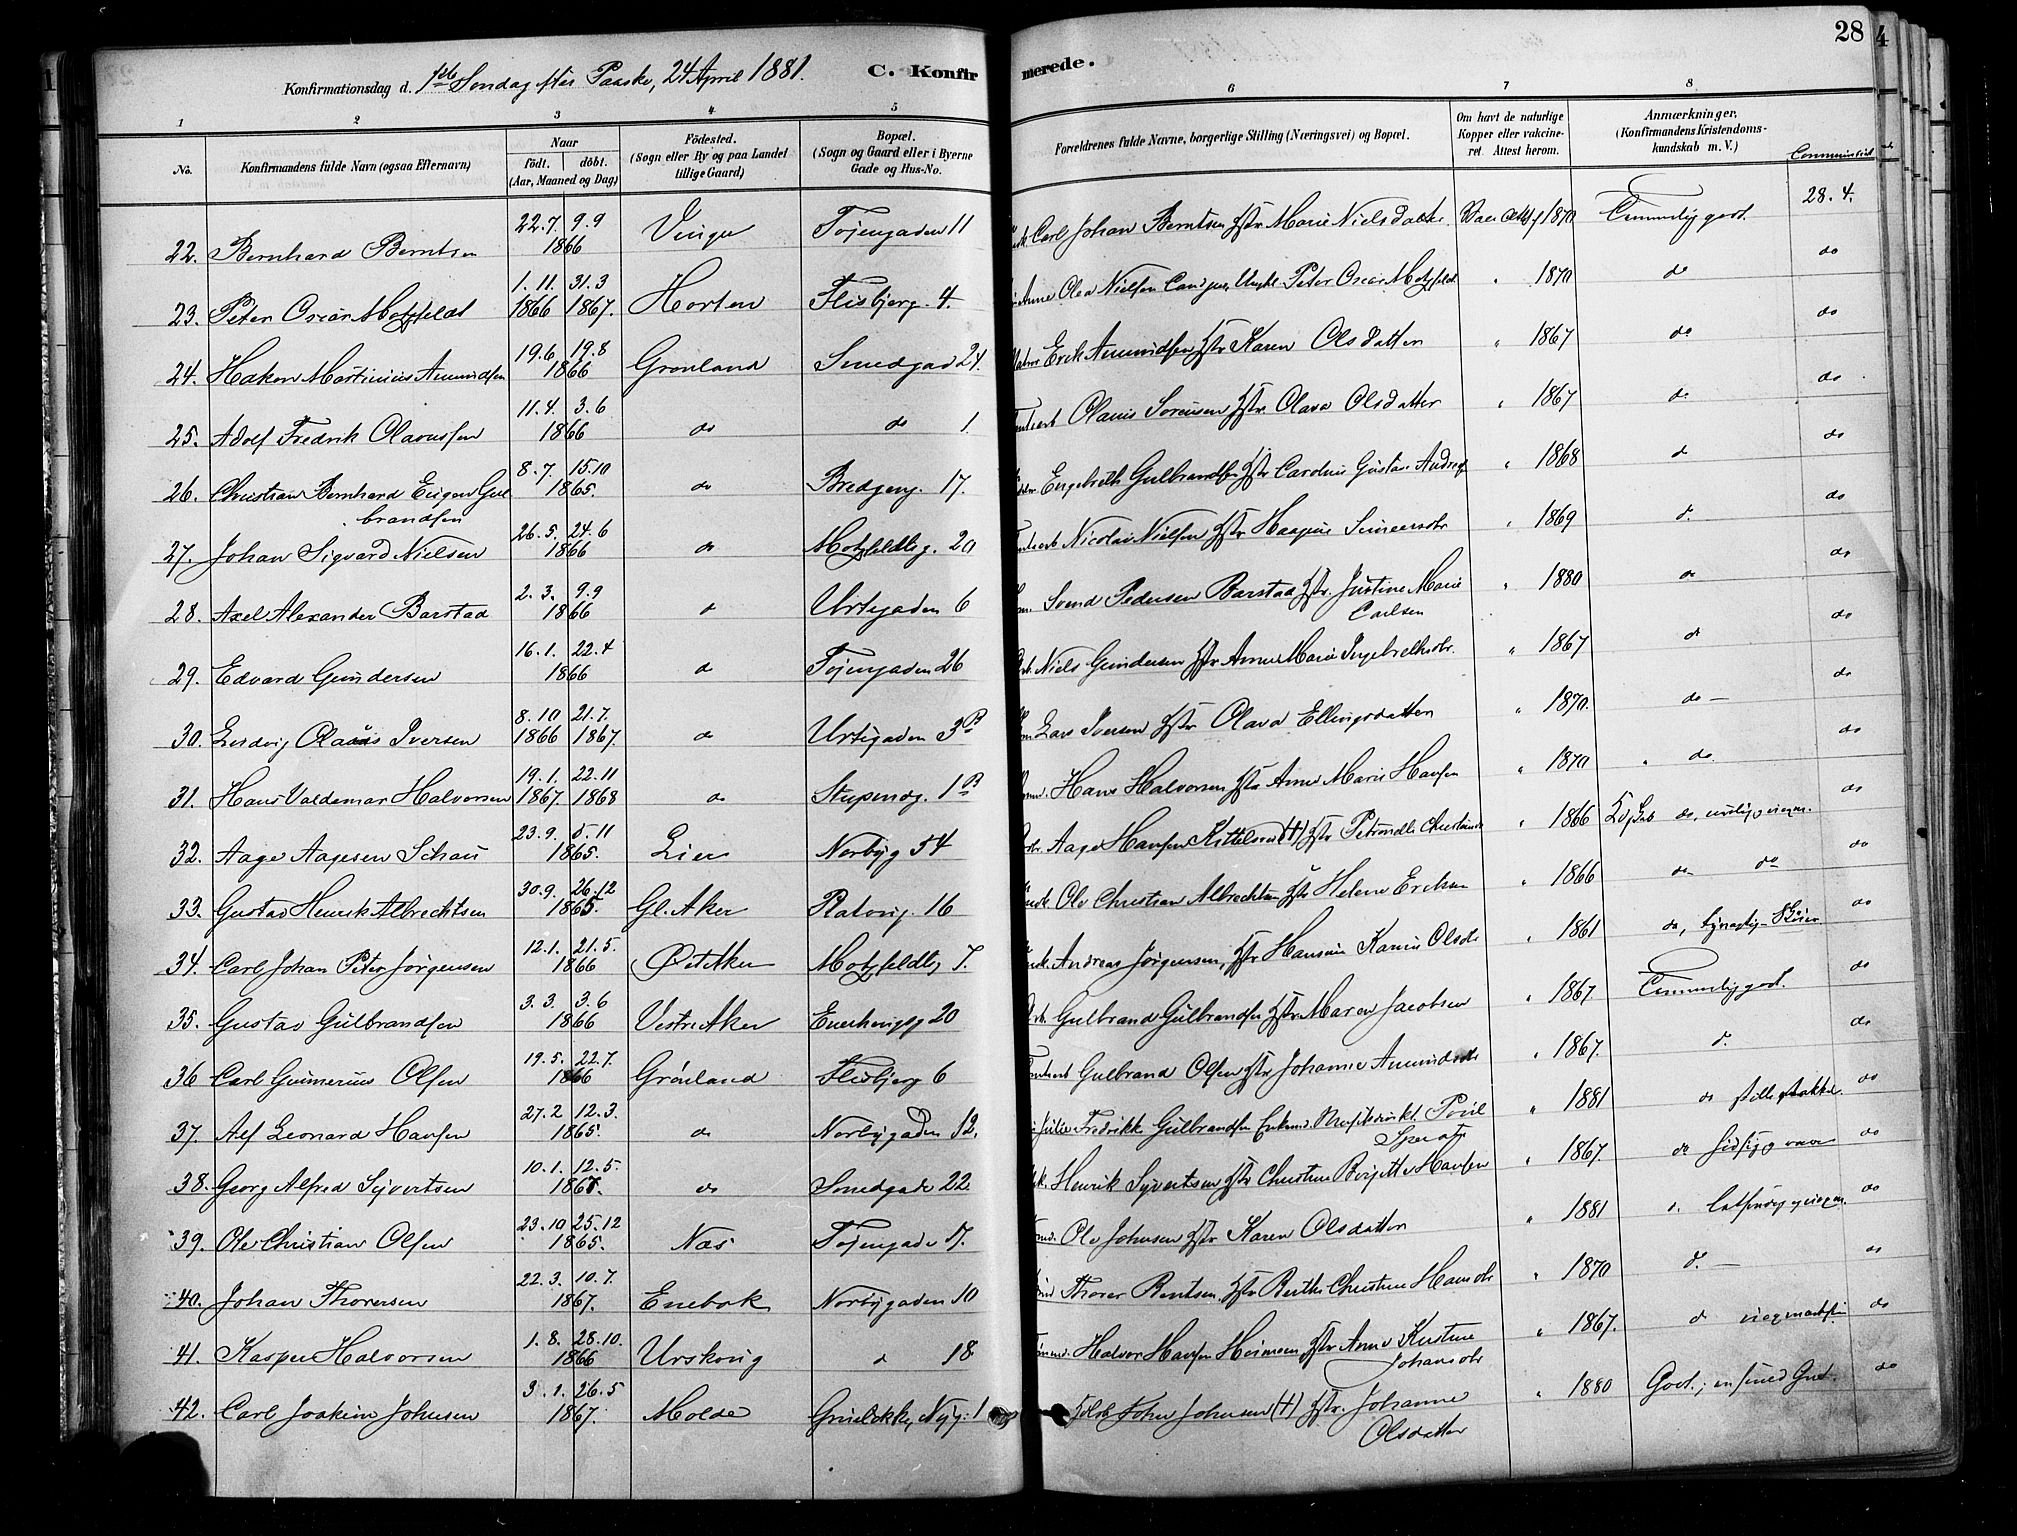 28
Konfirmationsdag d. 1ste Søndag efter Paaske, 24 April 1881.
C. Konfirmerede.
1 2 3 4 5 6 7 8
No. Konfirmandens fulde Navn (ogsaa Efternavn) Naar födt. döbt. (Aar, Maaned og Dag) Födested. (Sogn eller By og paa Landet tillige Gaard) Bopæl. (Sogn og Gaard eller i Byerne Gade og Hus-No. Forældrenes fulde Navne, borgerlige Stilling (Næringsvei) og Bopæl. Om havt de naturlige Kopper eller vakcineret. Attest herom. Anmærkninger, (Konfirmandens Kristendomskundskab m. V.)
22. Bernhard Berntsen 22.7. 9.9 1866 Vinger Tøjengaden 11 Carl Johan Berntsen Hstr Marie Nielsdatter 1870 Temmelig godt. 28.4.
23. Peter Oscar Motzfeldt 1.11. 1866 31.3 1867. Horten Flisbjerg. 4. Anne Olea Nielsen Peter Oscar Motzfeldt " 1870 do do
24. Hakon Martinius Amundsen 19.6. 19.8 1866 Grønland Smedgad 24. Erik Amundsen Hstr Karen Olsdatter " 1867 do do
25. Adolf Fredrik Olavussen 11.4. 3.6 1866 do do 1. Olaus Sørensen Hstr Olava Olsdatter " 1867 do do
26. Christian Bernhard Eugen Gulbrandsen 8.7. 15.10 1865. do Bredgang. 17. Engebreth Gulbrandsen Hstr Caroline Gustava " 1868 do do
27. Johan Sigvard Nielsen 26.5. 24.6 1866 do Motzfeldtsg. 20 Nicolai Nielsen Hstr " 1869 do do
28. Axel Alexander Barstad 2.3. 9.9 1866 do Urtegaden 6 Svend Pedersen Barstad Hstr. Justine Marie Carlsen " 1880 do do
29. Edvard Gundersen 16.1. 22.4 1866 do Tøjengaden 26 Niels Gundersen Hstr Anne Marie Ingebrethsdtr. " 1867 do do
30. Ludvig Olaus Iversen 8.10 1866 21.7. 1867. do Urtegaden 3 B Lars Iversen Hstr Olava Ellingsdatter " 1870. do — do
31. Hans Valdemar Halvorsen 19.1. 1867. 22.11 1868 do Stupenag. 1 B Hans Halvorsen Hstr Anne Marie Hansen " 1870 " do. do
32. Aage Aagesen Schau 23.9. 5.11 1865. Lier Norbyg 54 Aage Hansen Kittelsen (†) Hstr Petronelle " 1866 do
33. Gustav Henrik Albrechtsen 30.9. 26.12 1865. Gl. Aker Platoug. 16 Ole Christian Albrechtsen Hstr Helene Eriksen " 1866 do do do
34. Carl Johan Peter Jørgensen 12.1. 21.5. 1866 Øst. Aker Motzfeldtg. 7. Andreas Jørgensen, Hstr Hansine Karine Olsdtr " 1861 do
35. Gustav Gulbrandsen 3.3. 3.6 1866 Vestre Aker Enerhaugsg 20 Gulbrand Gulbrandsen Hstr Maren Jacobsen " 1867 Temmelig godt. do
36 Carl Gunerius Olsen 19.5. 22.7. 1866 Grønland Flisbjerg 6 Gulbrand Olsen Hstr Johanne Amundsdtr " 1867. do do
37. Alf Leonard Hansen 27.2 12.3. 1865. do Norbygaden 12. Julie Fredrikke Gulbrandsen Poul " 1881 do stille do
38. Georg Alfred Syvertsen 10.1. 12.5. 1867. do Smedgade 22. Henrik Syvertsen Hstr Christine Birgitte Hansen " 1867. do do
39. Ole Christian Olsen 23.10 25.12 1865. Næs Tøjengade 17. Ole Johnsen Hstr Karen Olsdatter " 1881 do
40. Johan Thoresen 22.3. 10.7. 1867. Enebak Norbygaden 10 Thorer Bentsen Hstr Berthe Christine Hansdtr " 1870 do. — do
41. Kasper Halvorsen 1.8. 28.10. 1866 Urskoug do 18. Halvor Hansen Hstr Anne Kirstine Johansdtr " 1867. do do
42. Carl Joakim Johnsen 3.1. 26.5 1867. Molde Grünløkke, Nyg. 1 John Johnsen (†) Hstr. Johanne Olsdatter " 1880 Godt. do